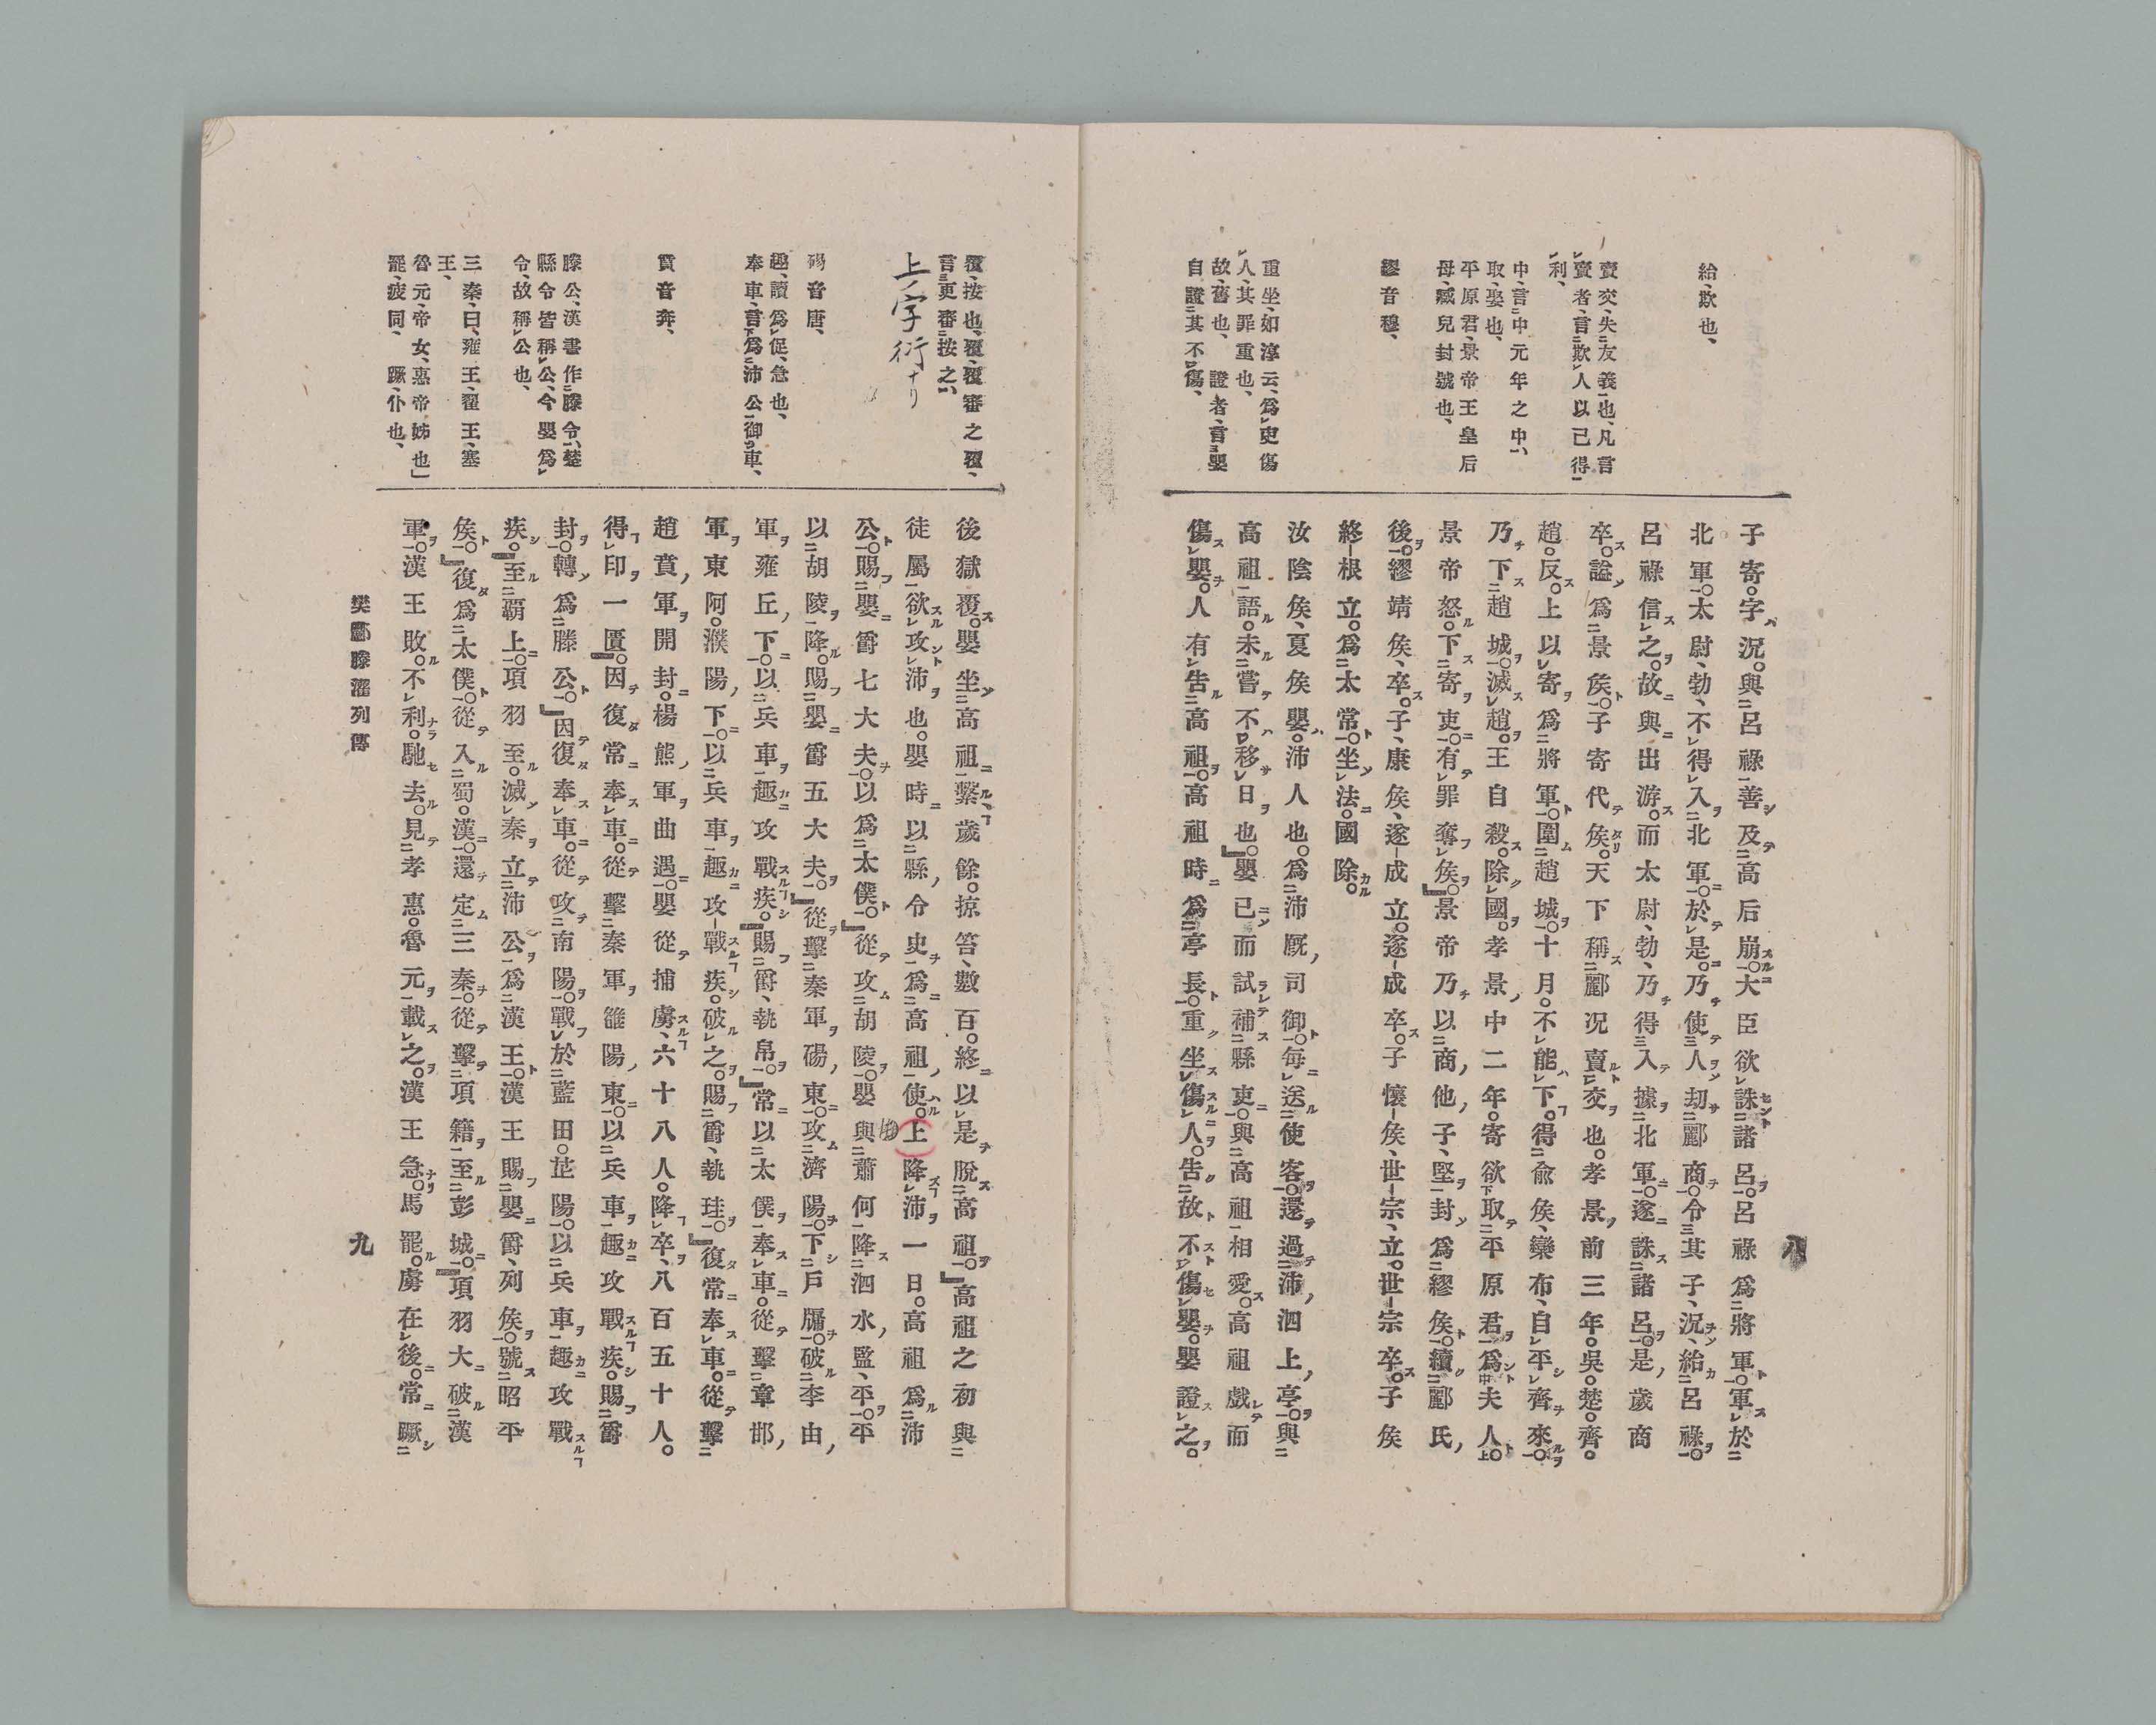 紿、欺也、
賣交、失友義也、凡言
賣者、言欺人以己得
利、
中、言中元年之中、
取、娶也、
平原君、景帝王皇后
母、臧兒封號也、
繆音穆、
重坐、如淳云、爲吏傷
人、其罪重也、
故、舊也、 證者、言嬰
自證其不傷、
子寄。字況。與呂祿善及高后崩。大臣欲誅諸呂。呂祿爲將軍。軍於
北軍。太尉、勃、不得入北軍。於是。乃使人劫酈商。令其子、況、紿呂祿。
呂祿信之。故與出游。而太尉、勃、乃得入據北軍。遂誅諸呂。是歲商
卒。謚爲景侯。子寄代侯。天下稱酈况賣交也。孝景前三年。吳。楚。齊。
趙。反。上以寄爲將軍。圍趙城。十月。不能下。得兪侯、欒布、自平齊來。
乃下趙城。滅趙。王自殺。除國。孝景中二年。寄欲取平原君爲夫人。
景帝怒。下寄吏。有罪奪侯。景帝乃以商他子、堅封爲繆侯。續酈氏
後。繆靖侯、卒。子、康侯、遂成立。遂成卒。子懷侯、世宗、立。世宗卒。子侯
終根立。爲太常。坐法。國除。
汝陰侯、夏侯嬰。沛人也。爲沛厩司御。每送使客。還過沛泗上亭。與
高祖語。未嘗不移日也。嬰已而試補縣吏。與高祖相愛。高祖戲而
傷嬰。人有告高祖。高祖時爲亭長。重坐傷人。告故不傷嬰。嬰證之。
八
覆、按也、覆、覆審之覆、
言更審按之、
上ノ字衍ナリ
碭音唐、
趣、讀爲促、急也、
奉車、言爲沛公御車、
賁音奔、
滕公、漢書作滕令、楚
縣令皆稱公、今嬰爲
令、故稱公也、
三秦、曰、雍王、翟王、塞
王、
魯元、帝女、惠帝姊也
罷、疲同、 蹶、仆也、
後獄覆。嬰坐高祖繫、歲餘。掠笞、數百。終以是脫高祖。高祖之初與
徒屬欲攻沛也。嬰時以縣令史爲高祖使。上降沛一日。高祖爲沛
公。賜嬰爵七大夫。以爲太僕。從攻胡陵。嬰與蕭何降泗水監、平。平
以胡陵降。賜嬰爵五大夫。從擊秦軍碭東。攻濟陽。下戶牖。破李由
軍雍丘下。以兵車趣攻戰疾。賜爵、執帛。常以太僕奉車。從擊章邯
軍東阿。濮陽下。以兵車趣攻戰疾。破之。賜爵、執珪。復常奉車。從擊
趙賁軍開封。楊熊軍曲遇。嬰從捕虜、六十八人。降卒、八百五十人。
得印一匱。因復常奉車。從擊秦軍雒陽東。以兵車趣攻戰疾。賜爵
封。轉爲滕公。因復奉車。從攻南陽。戰於藍田。芷陽。以兵車趣攻戰
疾。至霸上。項羽至。滅秦立沛公爲漢王。漢王賜嬰爵、列侯。號昭平
侯。復爲太僕。從入蜀。漢。還定三秦。從擊項籍。至彭城。項羽大破漢
軍。漢王敗。不利。馳去。見孝惠。魯元載之。漢王急。馬罷。虜在後。常蹶
樊酈滕灌列傳
九